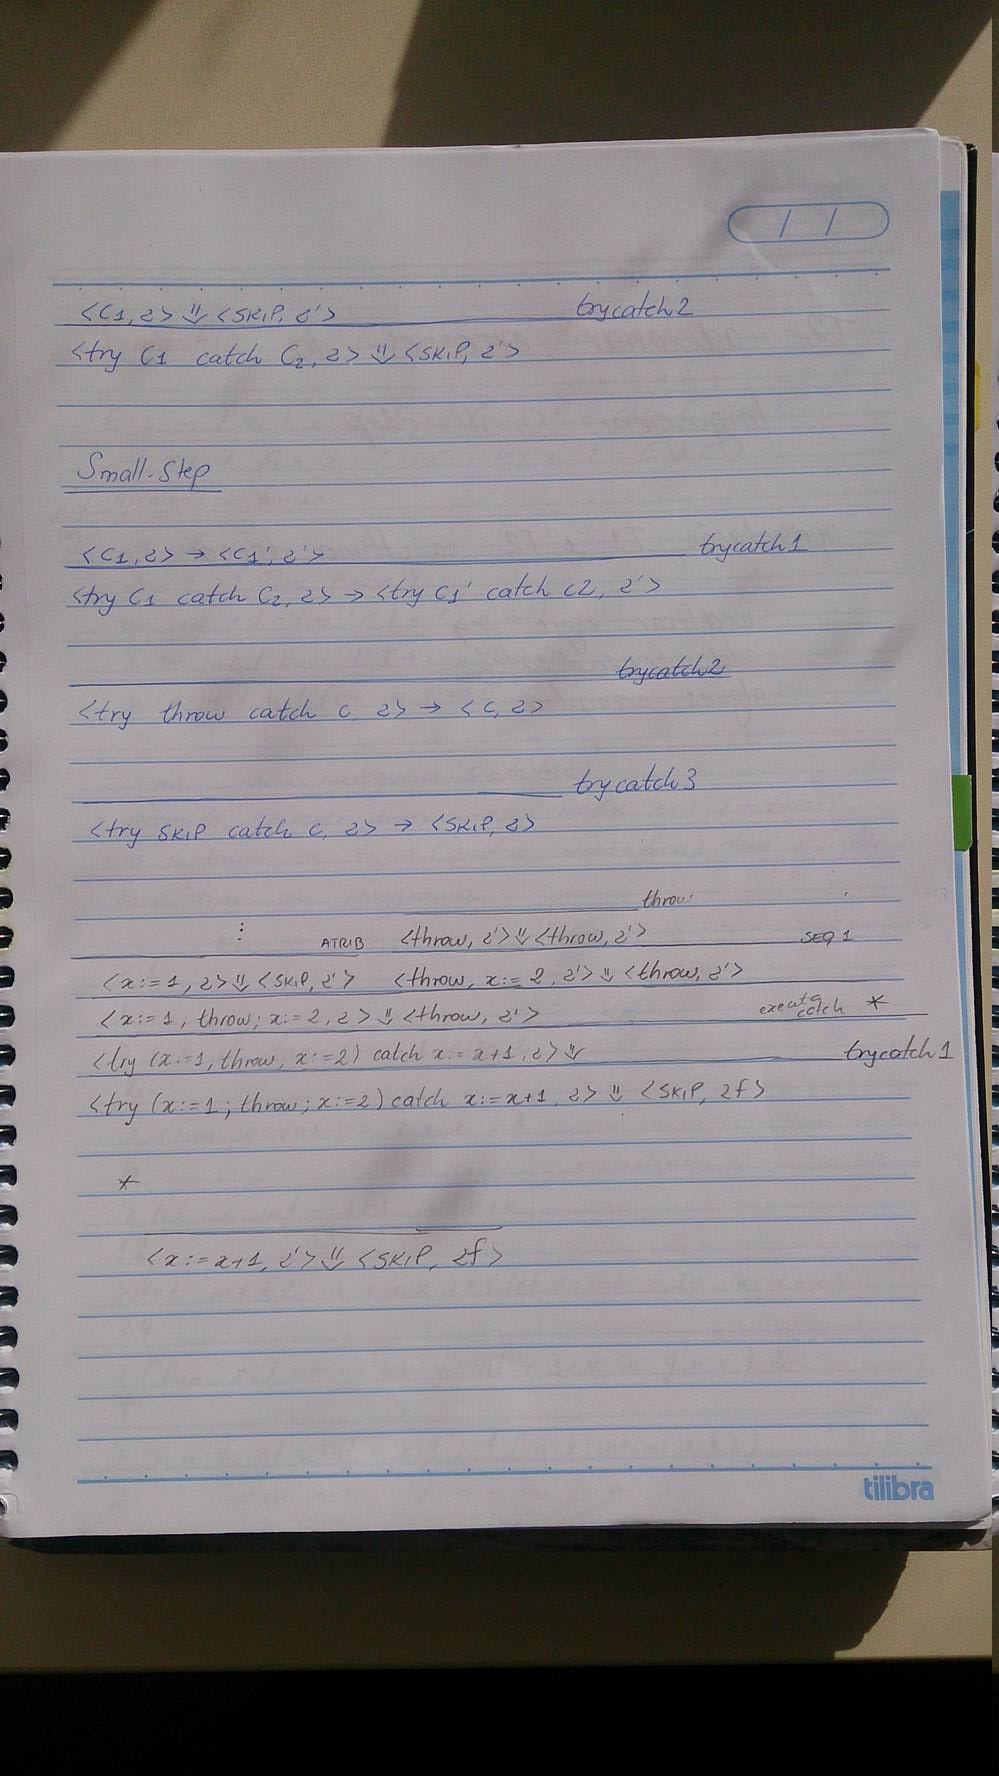 <C1, 2> ⇓ <SKIP, 2'> trycatch2
<try C1 catch C2, 2> ⇓ <SKIP, 2'>
Small-Step
<C1, 2> → <C1', 2'> trycatch1
<try C1 catch C2, 2> → <try C1' catch c2, 2'>
trycatch2
<try throw catch c, 2> → <c, 2>
trycatch3
<try SKIP catch c, 2> → <SKIP, 2>
throw
⋮ ATRIB <throw, 2'> ⇓ <throw, 2'> SEQ 1
<x:=1, 2> ⇓ <SKIP, 2'> <throw, x:=2, 2'> ⇓ <throw, 2'>
<x:=1, throw; x:=2, 2> ⇓ <throw, 2'> executa catch *
<try (x:=1, throw, x:=2) catch x:=x+1, 2> ⇓ trycatch1
<try (x:=1; throw; x:=2) catch x:=x+1, 2> ⇓ <SKIP, 2f>
*
<x:=x+1, 2'> ⇓ <SKIP, 2f>
tilibra